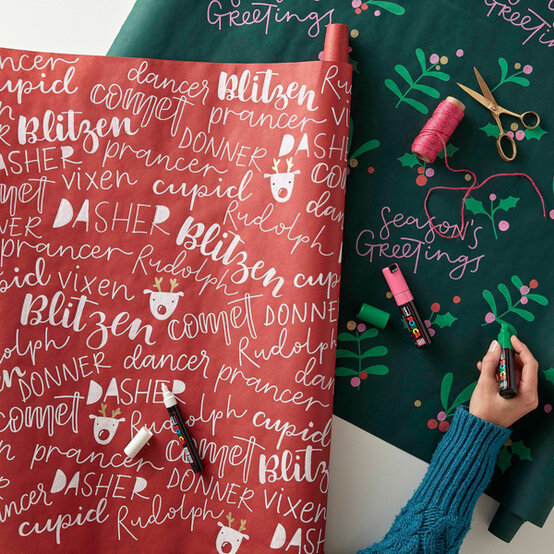 Season's
Greetings
dancer Blitzen Ru
prancer
cupid
comet
prancer
Blitzen DONNER DASH
DASHER prancer
vixen cupid
comet
dancer
DONNER DASHER Rudolph
prancer Rudolph Blitzen cupid
cupid vixen
Blitzen comet DONNER
Rudolph dancer Rudolph
DONNER DASHER prancer
comet Rudolph cupid
prancer comet Blitz
DASHER DONNER vixen
prancer DASHER
cupid Rudolph
Greetings
Season's
Greetings
POSCA
POSCA